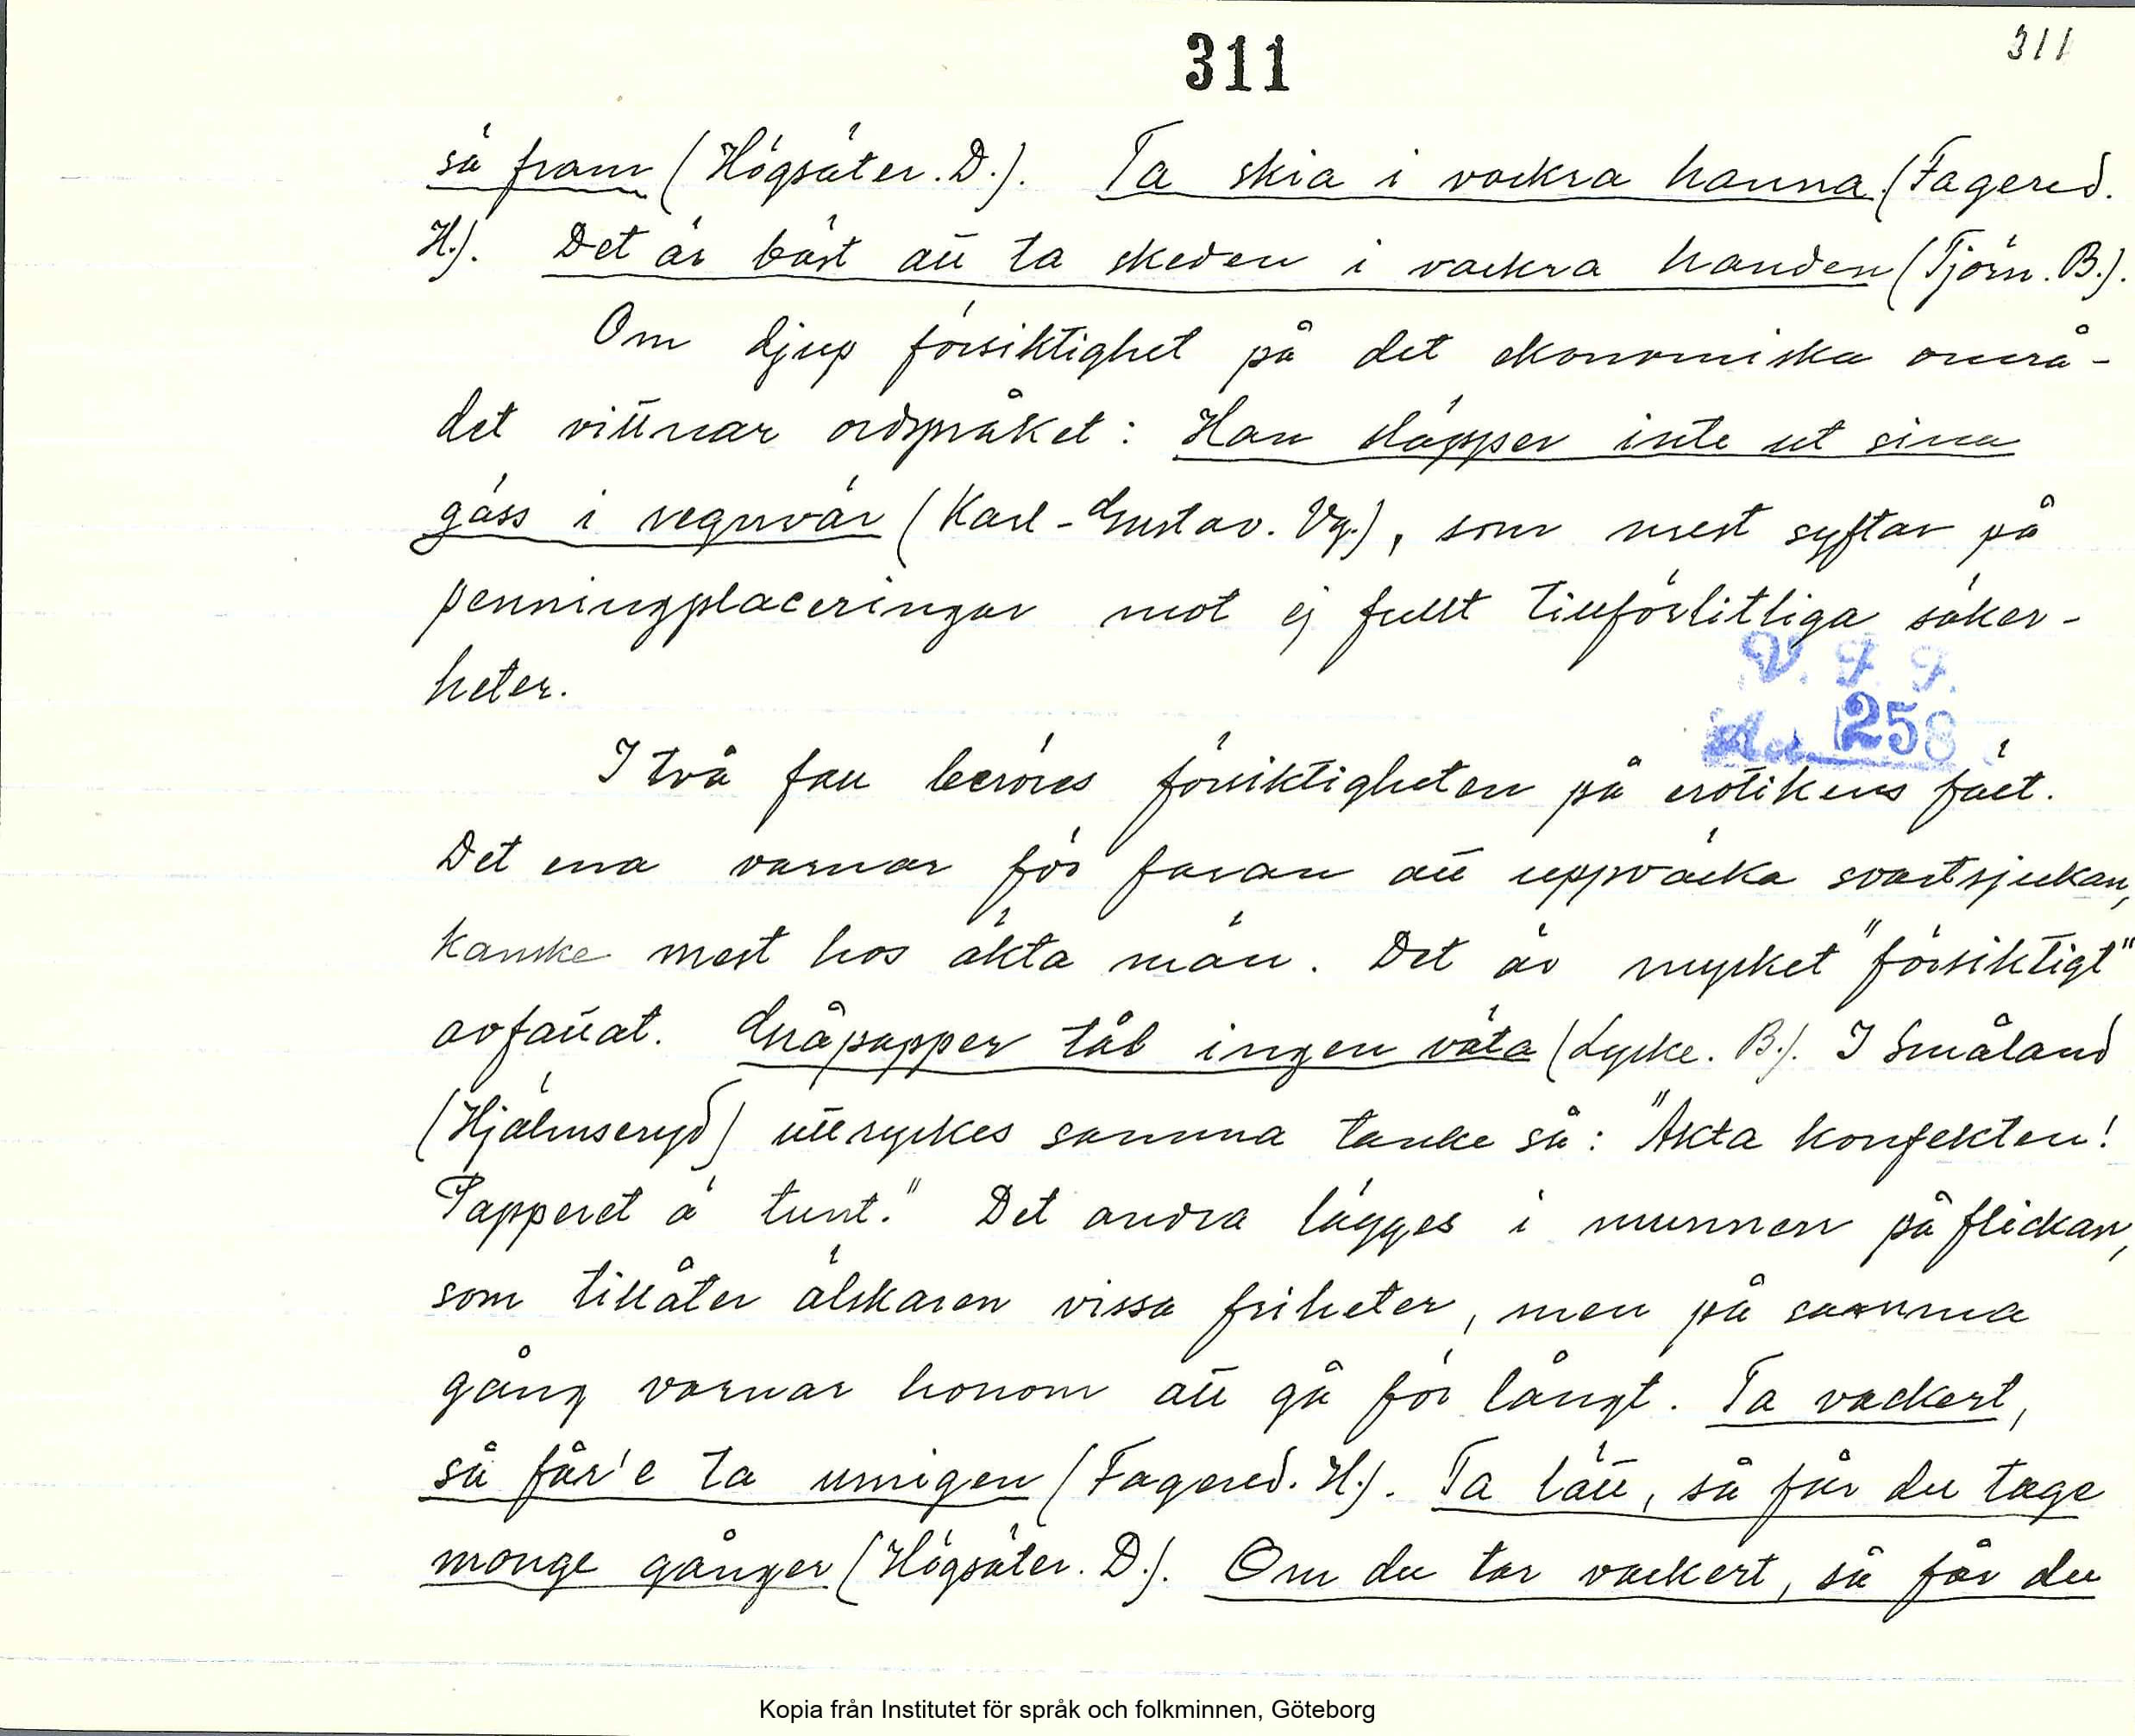 311
311
så fram (Högsäter. D.). Ta skia i vackra hanna. (Fagered.
H.). Det är bäst att ta skeden i vackra handen (Tjörn. B.).
Om djup försiktighet på det ekonomiska områ-
det vittnar ordspråket: Han släpper inte ut sina
gäss i regnvär (Karl-Gustav. Vg.), som mest syftar på
penningplaceringar mot ej fullt tillförlitliga säker-
heter.
V. F. F.
Acc. 1258
I två fall beröres försiktigheten på erotikens fält.
Det ena varnar för faran att uppväcka svartsjukan,
kanske mest hos äkta män. Det är mycket "försiktigt"
avfattat. Gråpapper tål ingen väta (Lycke. B.). I Småland
(Hjälmseryd) uttryckes samma tanke så: "Akta konfekten!
Papperet ä tunt." Det andra lägges i munnen på flickan,
som tillåter älskaren vissa friheter, men på samma
gång varnar honom att gå för långt. Ta vackert,
så får'e ta umigen (Fagered. H.). Ta lätt, så får du tage
monge gånger (Högsäter. D.). Om du tar vackert, så får du
Kopia från Institutet för språk och folkminnen, Göteborg